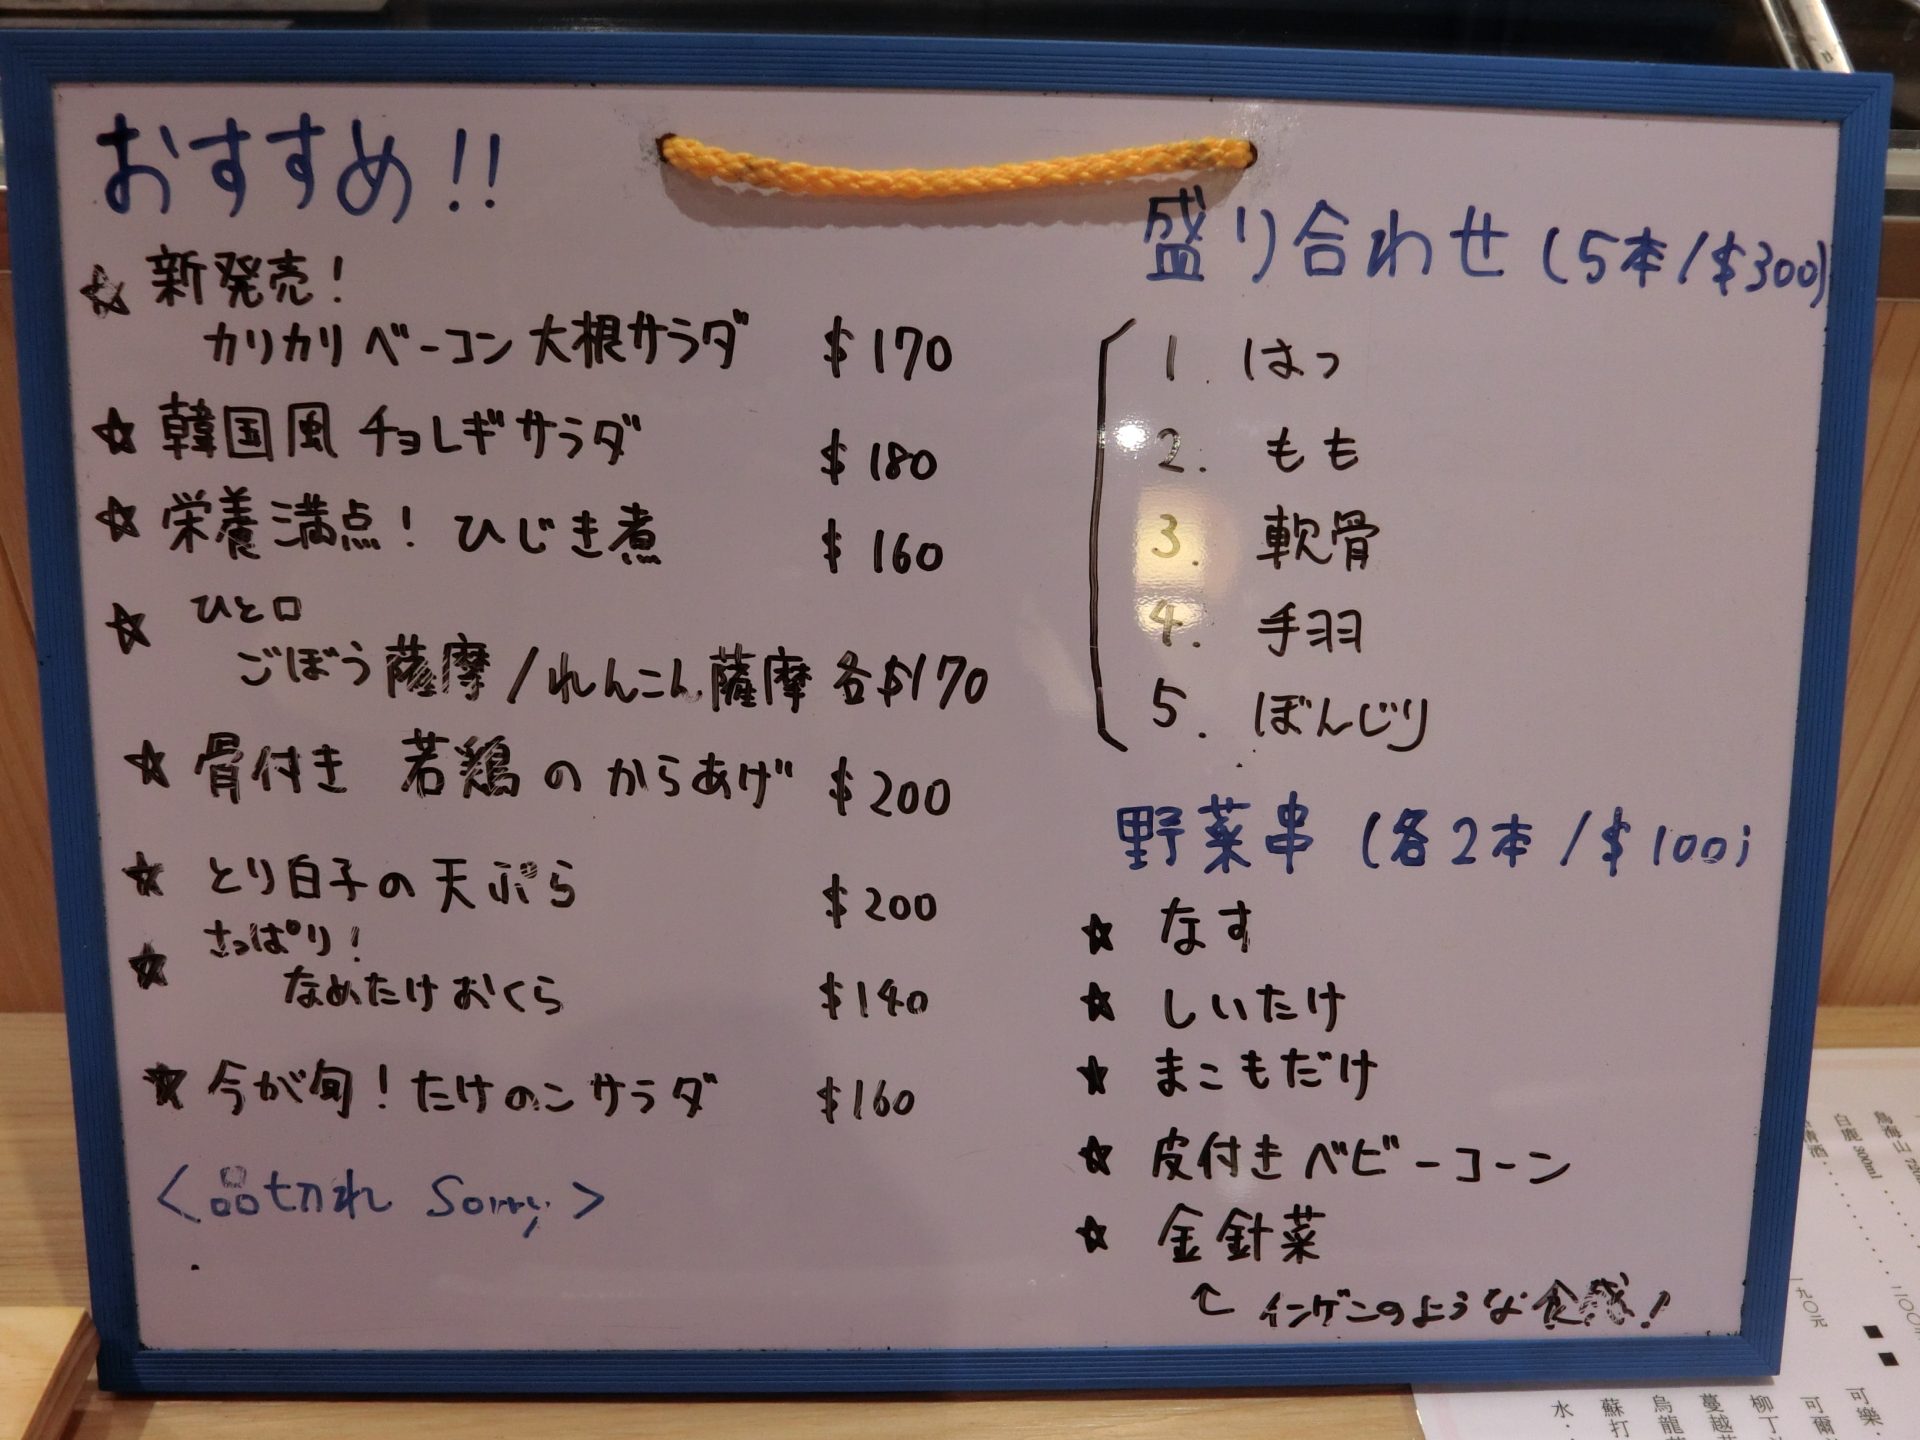 おすすめ!!
☆ 新発売!
カリカリベーコン大根サラダ $170
☆ 韓国風チョレギサラダ $180
☆ 栄養満点! ひじき煮 $160
☆ ひと口
ごぼう薩摩/れんこん薩摩 各$170
☆ 骨付き 若鶏のからあげ $200
☆ とり白子の天ぷら $200
☆ さっぱり!
なめたけおくら $140
☆ 今が旬!たけのこサラダ $160
<品切れ Sorry>
盛り合わせ (5本/$300)
1. はつ
2. もも
3. 軟骨
4. 手羽
5. ぼんじり
野菜串 (各2本/$100)
☆ なす
☆ しいたけ
☆ まこもだけ
☆ 皮付きベビーコーン
☆ 金針菜
↑ インゲンのような食感!
白鹿 300ml
一九〇元
可樂
蘇打
水